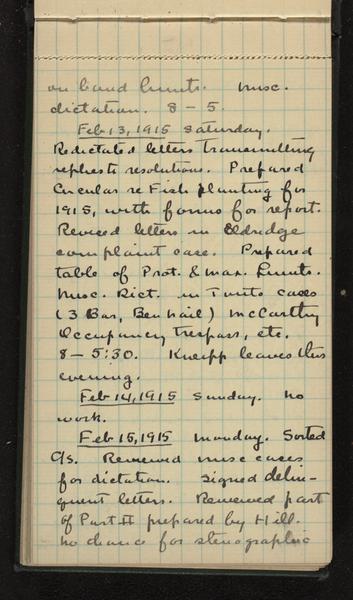 on band limits. Misc.
dictation. 8 - 5.
Feb 13, 1915 Saturday.
Redictated letters transmitting
resolutions. Prepared
Circular re Fish planting for
1915, with forms for report.
Revised letters in Eldredge
complaint case. Prepared
table of Prot. & max. limits.
Misc. Dict. in cases
(3 Bar, Ben Hail) McCarthy
Occupancy trespass, etc.
8 - 5:30. Kneipp leaves this
evening.
Feb 14, 1915 Sunday. No
work.
Feb 15, 1915 Monday. Sorted
C/s. Reviewed misc cases
for dictation. Signed delin-
quent letters. Reviewed part
of Part II prepared by Hill.
No chance for stenographic